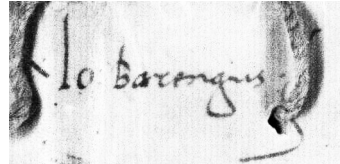 lo barengus